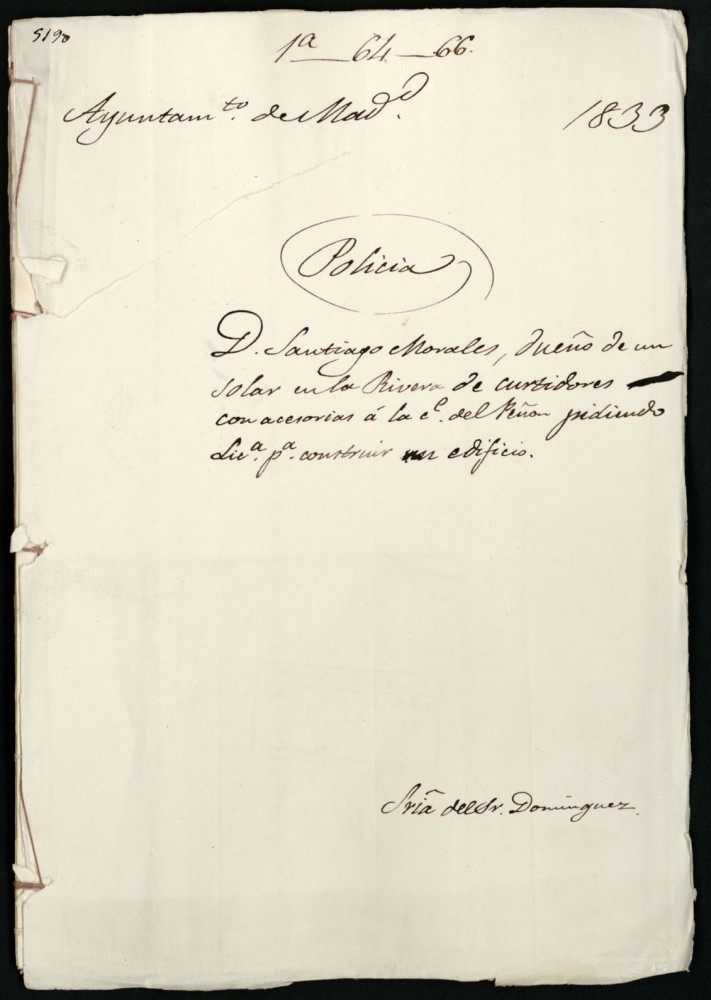 5190
1ª 64 66.
Ayuntamto. de Madd. 1833
Policia
D. Santiago Morales, dueño de un
solar en la Rivera de curtidores
con acesorias á la ce. del Peñon pidiendo
Lica. pa. construir un edificio.
Sria del Sr. Dominguez.